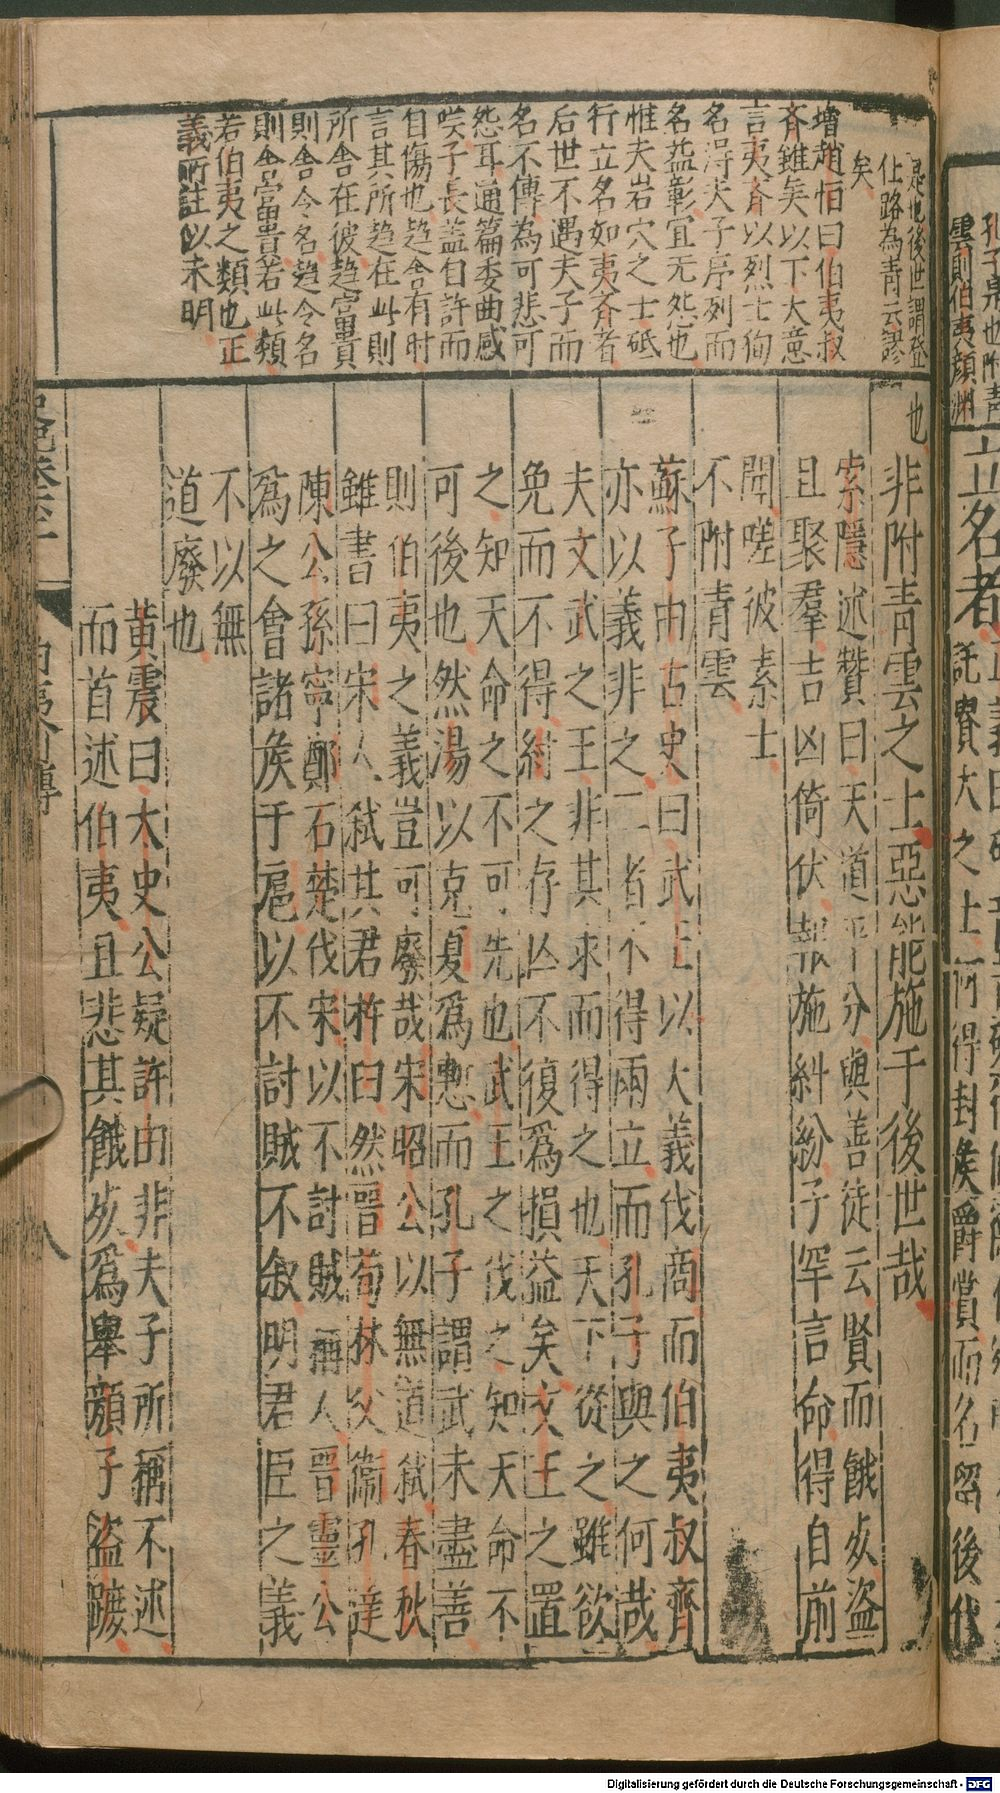 孔子是也附青
雲則伯夷顏淵
是也後世謂登
仕路為青云謬
矣
增趙恒曰伯夷叔
齐雖矣以下大意
言夷齐以烈士徇
名淂夫子序列而
名益彰宜无怨也
惟夫岩穴之士砥
行立名如夷齐者
后世不遇夫子而
名不傳為可悲可
怨耳通篇委曲感
嘆子長盖自許而
自傷也趋舍有时
言其所趋在此則
所舍在彼趋富貴
則舍令名趋令名
則舍富貴若此類
若伯夷之類也正
義所註以未明
立名者
託貴大之士何得封矦爵賞而名留後代
也
非附青雲之士惡能施于後世哉
索隱述贊曰天道平分與善徒云賢而餓歺盜
且聚羣吉凶倚伏報施糾紛子罕言命得自前
聞嗟彼素士
不附青雲
蘇子由古史曰武王以大義伐商而伯夷叔齊
亦以義非之二者不得兩立而孔子與之何哉
夫文武之王非其求而得之也天下從之雖欲
免而不得紂之存亾不復爲損益矣文王之置
之知天命之不可先也武王之伐之知天命不
可後也然湯以克夏爲慙而孔子謂武未盡善
則伯夷之義豈可廢哉宋昭公以無道弑春秋
雖書曰宋人弑其君杵臼然晉荀林父衞孔達
陳公孫寧鄭石楚伐宋以不討賊稱人晉靈公
爲之會諸矦于扈以不討賊不叙明君臣之義
不以無
道廢也
黄震曰太史公疑許由非夫子所稱不述
而首述伯夷且悲其餓歺爲舉顏子盜蹠
伯夷列傳
八
Digitalisierung gefördert durch die Deutsche Forschungsgemeinschaft - DFG